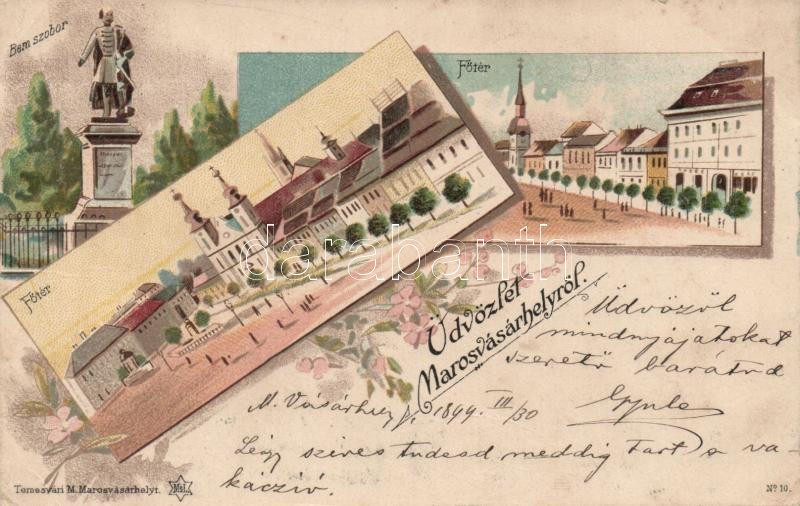 Bem szobor
Főtér
Főtér
darabanth
Üdvözlet
Marosvásárhelyről.
Üdvözöl
mindnyájatokat
szerető barátod
Gyula
M. Vásárhely, 1899. III/30
Légy szives tudasd meddig tart a va-
káczió.
Temesvári M. Marosvásárhelyt.
No 10.